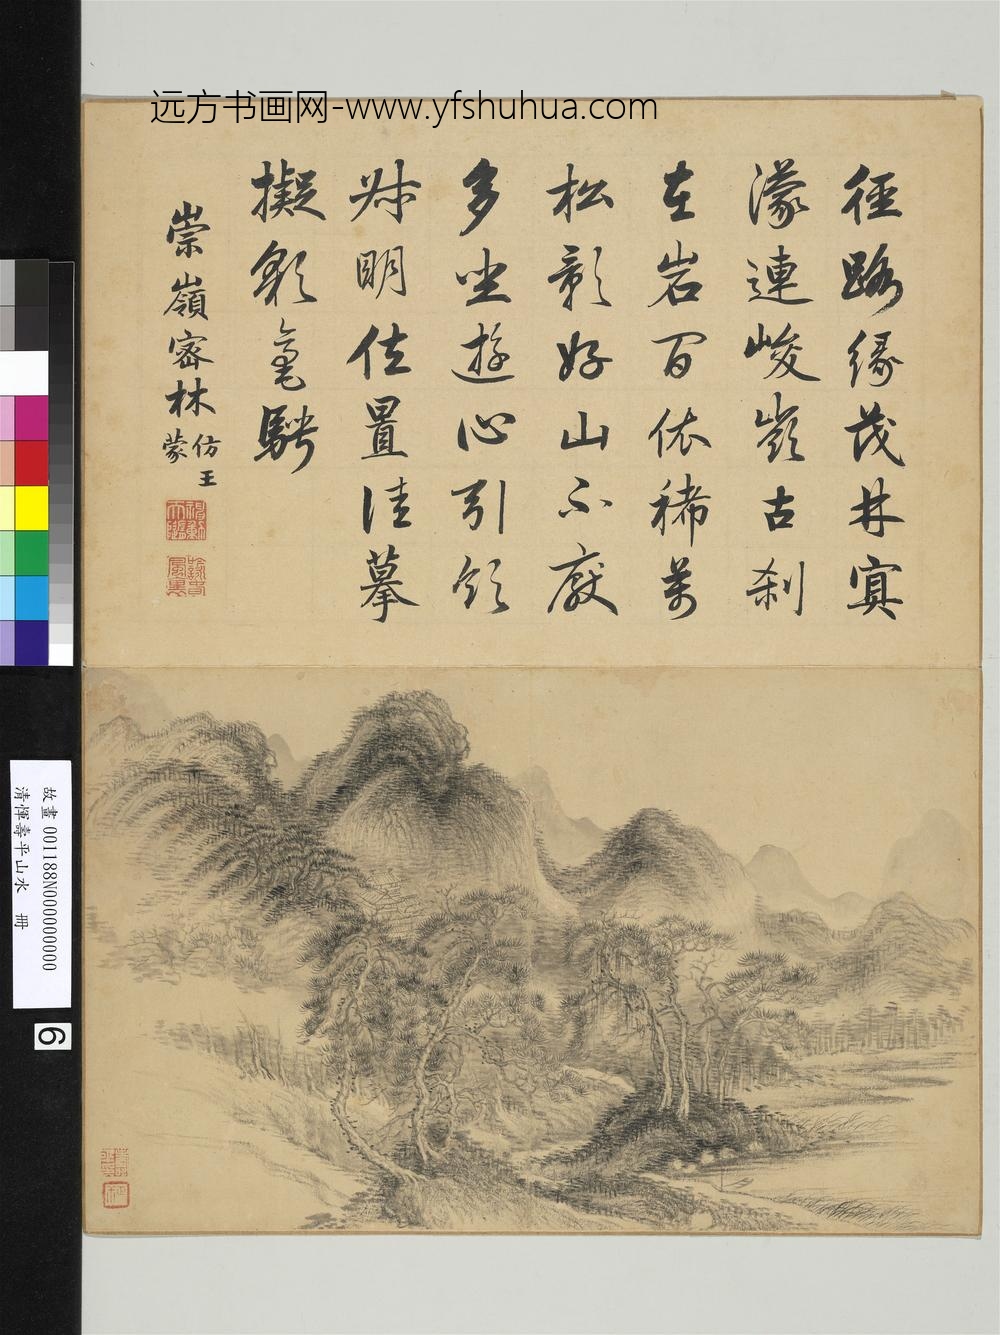 远方书画网-www.yfshuhua.com
徑路緣茂林冥
濛連峻嶺古刹
在岩間依稀萬
松影好山不厭
多坐遊心引領
叔明位置佳摹
擬彩毫騁
崇嶺密林仿王蒙
故畫 001188N000000000
清惲壽平山水 冊
6